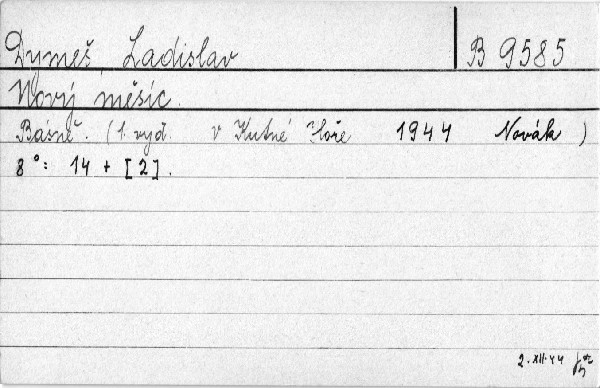 Dymeš Ladislav B 9585
Nový měsíc.
Básně. (1. vyd. v Kutné Hoře 1944 Novák)
8°: 14 + [2].
2.XII.44